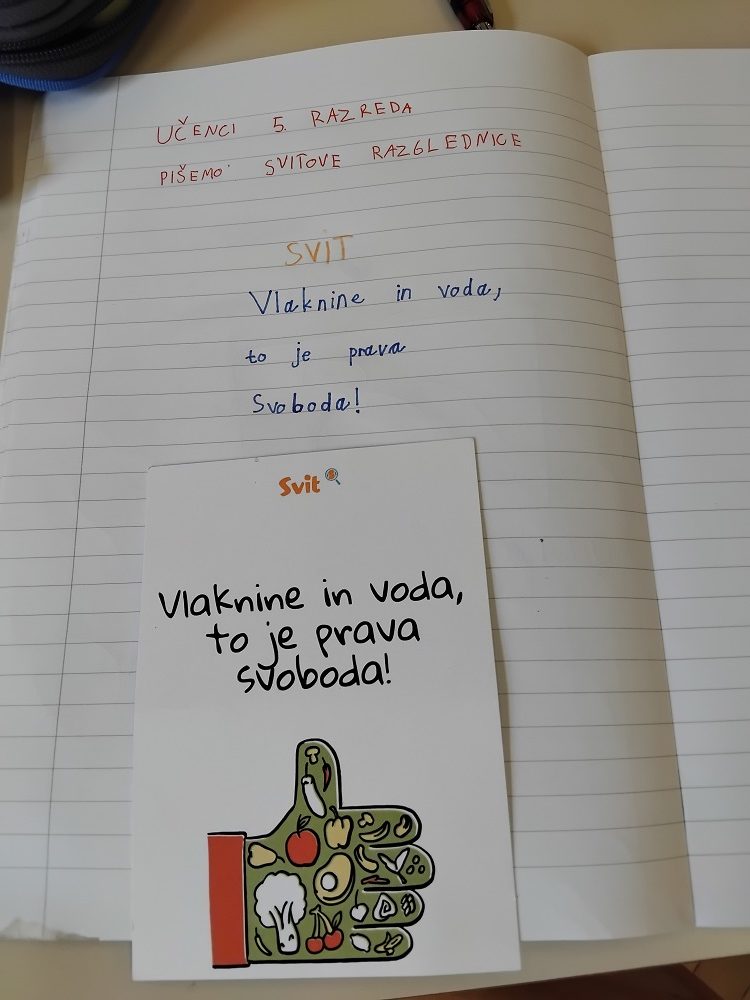 UČENCI 5. RAZREDA
PIŠEMO SVITOVE RAZGLEDNICE
SVIT
Vlaknine in voda,
to je prava
Svoboda!
Svit
Vlaknine in voda,
to je prava
svoboda!